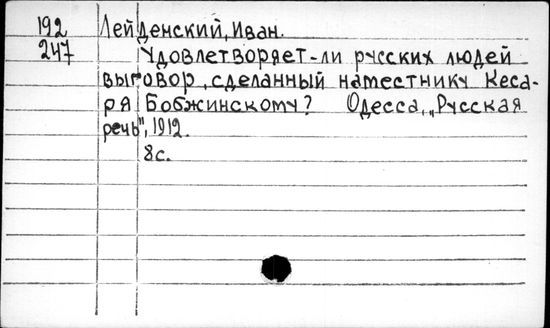 192 Лейденский, Иван.
247 Удовлетворяет-ли русских людей
выговор, сделанный наместнику Кеса-
ря Бобжинскому? Одесса, „Русская
речь", 1912.
8с.